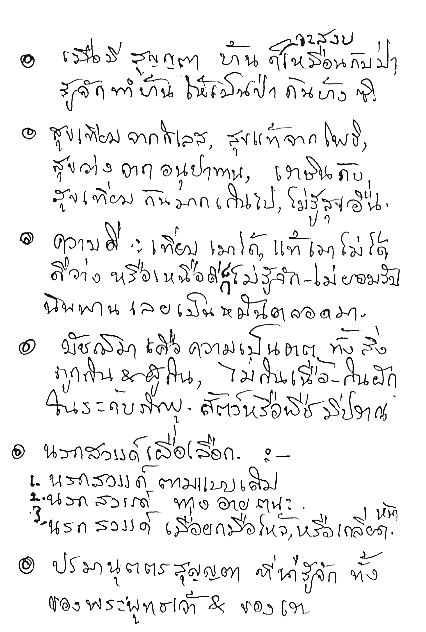 จะสงบ
๏ เมื่อมี สุญญตา บ้าน ก็เหมือนกับป่า,
รู้จักทำบ้าน ให้เป็นป่า กันบ้าง ซิ.
๏ สุขเทียม จากกิเลส, สุขแท้จากโพธิ,
สุขว่าง จาก อนุปาทาน, เราชินกับ
สุขเทียม กันมากเกินไป, ไม่รู้สุขอื่น.
๏ ความดี : เทียม เอาได้, แท้ เอาไม่ได้
ดีว่าง หรือเหนือดี ก็ไม่รู้จัก - ไม่ยอมรับ
นิพพาน เลยเป็น หมันตลอดมา.
๏ มัชฌิมา คือ ความเป็นธาตุ ทั้ง สิ่ง
ถูกกิน & ผู้กิน, ไม่กินเนื้อ - กินผัก
ในระดับภิกษุ. สัตว์หรือพืช มีปราณ
๏ นรกสวรรค์ เผื่อเลือก. :-
1. นรกสวรรค์ ตามแบบเดิม
2. นรก สวรรค์ ทาง อายตนะ.
3. นรก สวรรค์ เมื่อยกมือไหว้, หรือเกลียด
หน้า.
๏ ปรมานุตตรสุญญตา ที่น่ารู้จัก ทั้ง
ของพระพุทธเจ้า & ของเรา